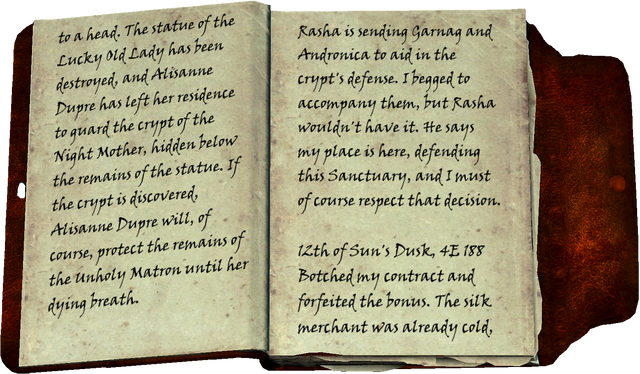 to a head. The statue of the
Lucky Old Lady has been
destroyed, and Alisanne
Dupre has left her residence
to guard the crypt of the
Night Mother, hidden below
the remains of the statue. If
the crypt is discovered,
Alisanne Dupre will, of
course, protect the remains of
the Unholy Matron until her
dying breath.
Rasha is sending Garnag and
Andronica to aid in the
crypt's defense. I begged to
accompany them, but Rasha
wouldn't have it. He says
my place is here, defending
this Sanctuary, and I must
of course respect that decision.
12th of Sun's Dusk, 4E 188
Botched my contract and
forfeited the bonus. The silk
merchant was already cold,